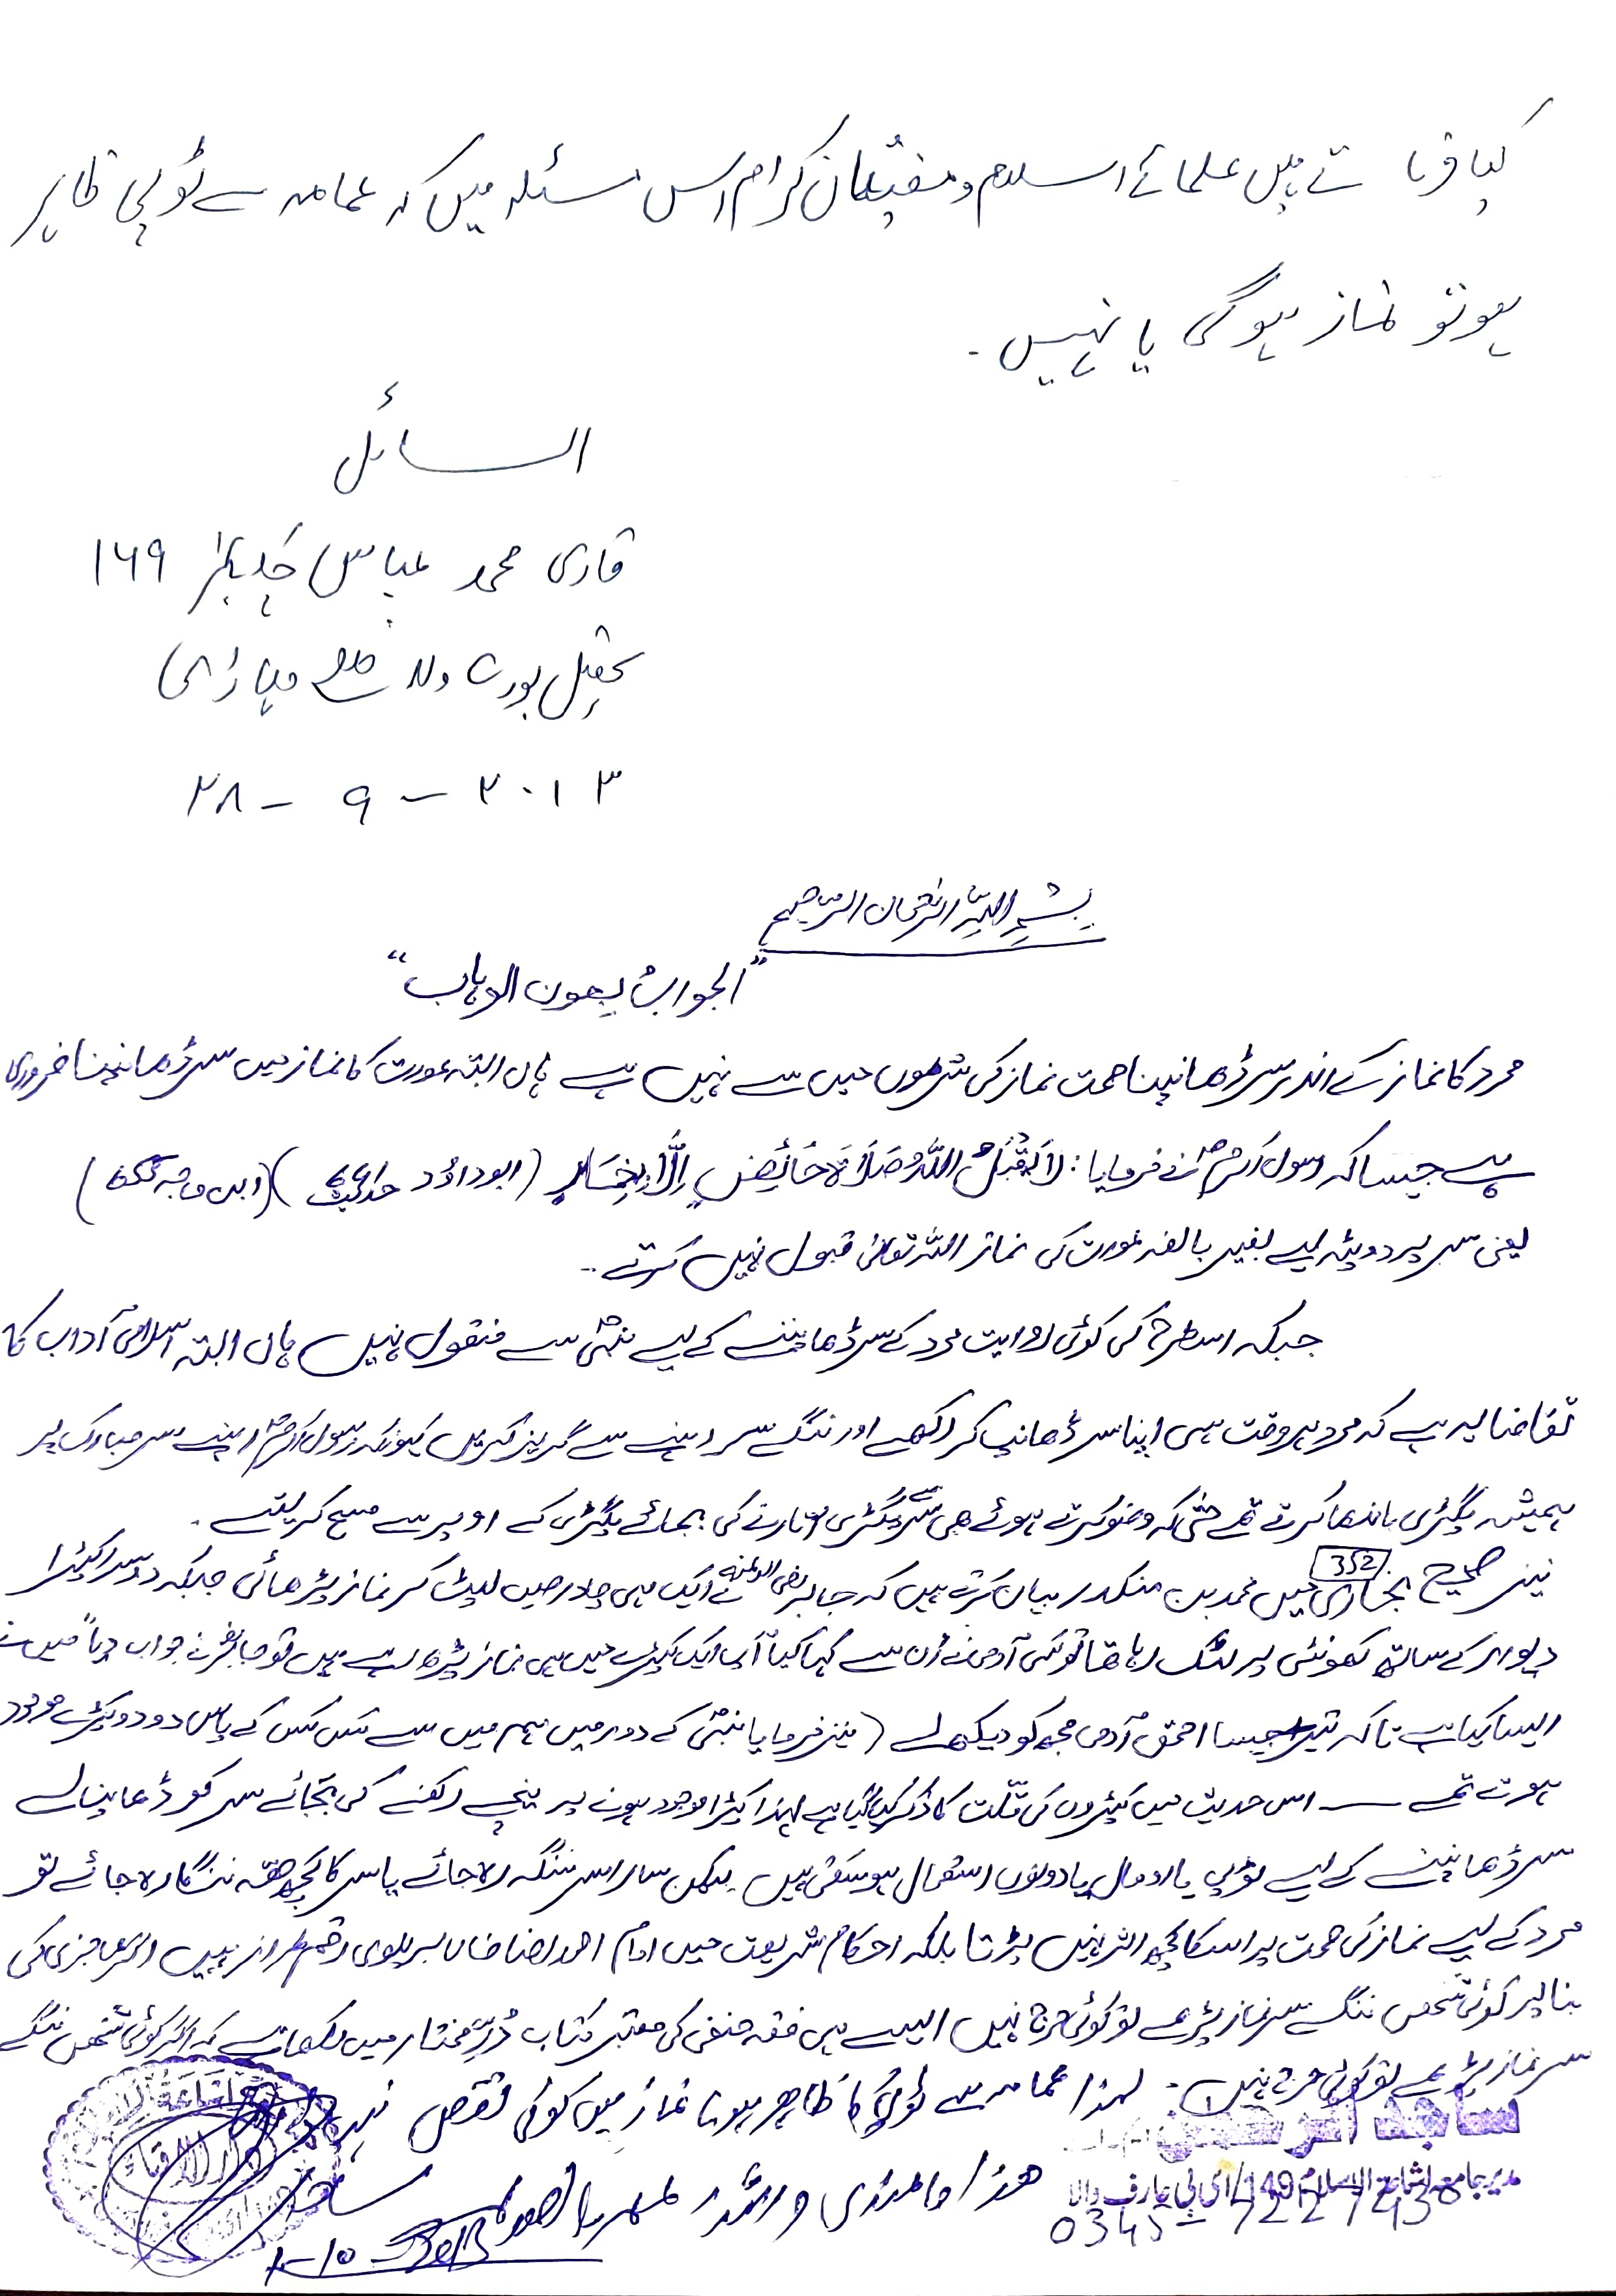 کیا فرماتے ہیں علمائے اسلام و مفتیان کرام اس مسئلہ میں کہ عمامہ سے ٹوپی ظاہر
ہو تو نماز ہوگی یا نہیں۔
السائل
قاری محمد عباس ۱۶۹
تحصیل بورے والا ضلع وہاڑی
۲۸ - ۹ - ۲۰۱۳
بسم اللہ الرحمان الرحیم
"الجواب بعون الوہاب"
مرد کا نماز کے اندر سر ڈھانپنا صحت نماز کی شرطوں میں سے نہیں ہے ہاں البتہ عورت کا نماز میں سر ڈھانپنا ضروری
ہے جیسا کہ رسول اکرمؐ نے فرمایا: لَا یَقْبَلُ اللہُ صَلَاۃَ حَائِضٍ اِلَّا بِخِمَارٍ (ابوداؤد) (ابن ماجہ)
یعنی سر پر دوپٹہ لیے بغیر بالغہ عورت کی نماز اللہ تعالیٰ قبول نہیں کرتے۔
جبکہ اسطرح کی کوئی روایت مرد کے سر ڈھانپنے کے لیے نبیؐ سے منقول نہیں ہاں البتہ اسلامی آداب کا
تقاضا یہ ہے کہ مرد ہر وقت ہی اپنا سر ڈھانپ کر رکھے اور ننگے سر رہنے سے گریز کریں کیونکہ رسول اکرمؐ اپنے سر مبارک پر
ہمیشہ پگڑی باندھا کرتے تھے حتٰی کہ وضو کرتے ہوئے بھی سر سے پگڑی اتارنے کی بجائے پگڑی کے اوپر سے مسح کر لیتے۔
نیز صحیح بخاری 352 میں محمد بن منکدر بیان کرتے ہیں کہ جابر رضی اللہ عنہ نے ایک ہی چادر میں لپٹ کر نماز پڑھائی جبکہ دوسرا کپڑا
دیوار کے ساتھ کھونٹی پر لٹک رہا تھا تو کسی آدمی نے ان سے کہا کیا آپ ایک کپڑے میں ہی نماز پڑھ رہے ہیں تو جابرؓ نے جواب دیا "میں نے
ایسا کیا ہے تاکہ تیرے جیسا احمق آدمی مجھ کو دیکھ لے (نیز فرمایا نبیؐ کے دور میں ہم میں سے کس کس کے پاس دو دو کپڑے موجود
ہوتے تھے ـــ اس حدیث میں کپڑوں کی قلّت کا ذکر کیا گیا ہے لہذا کپڑا موجود ہونے پر نیچے رکھنے کی بجائے سر کو ڈھانپ لے
سر ڈھانپنے کے لیے ٹوپی یا رومال یا دونوں استعمال ہو سکتی ہیں لیکن سارا سر ننگہ رہ جائے یا سر کا کچھ حصّہ ننگا رہ جائے تو
مرد کے لیے نماز کی صحت پر اسکا کچھ اثر نہیں پڑتا بلکہ احکام شریعت میں امام احمد رضا خاں بریلوی رقم طراز ہیں اگر عاجزی کی
بنا پر کوئی شخص ننگے سر نماز پڑھے تو کوئی حرج نہیں ایسے ہی فقہ حنفی کی معتبر کتاب دُرِّ مختار میں لکھا ہے کہ اگر کوئی شخص ننگے
سر نماز پڑھے تو کوئی حرج نہیں۔ لہذا عمامہ سے ٹوپی کا ظاہر ہونا نماز میں کوئی نقص نہیں
ھذا ما عندی واللہ اعلم بالصواب
مدیر جامعہ اشاعت الاسلام 149/ای بی عارف والا
0345-7227430
دارالافتاء
1-10-2013